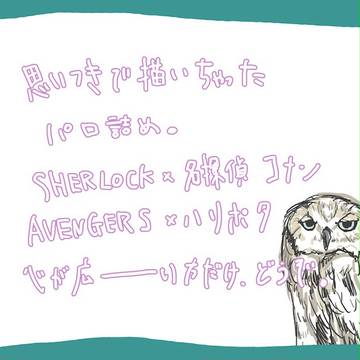 思いつきで描いちゃった
パロ詰め。
SHERLOCK×名探偵コナン
AVENGERS×ハリポタ
心が広──い方だけ、どうぞ。